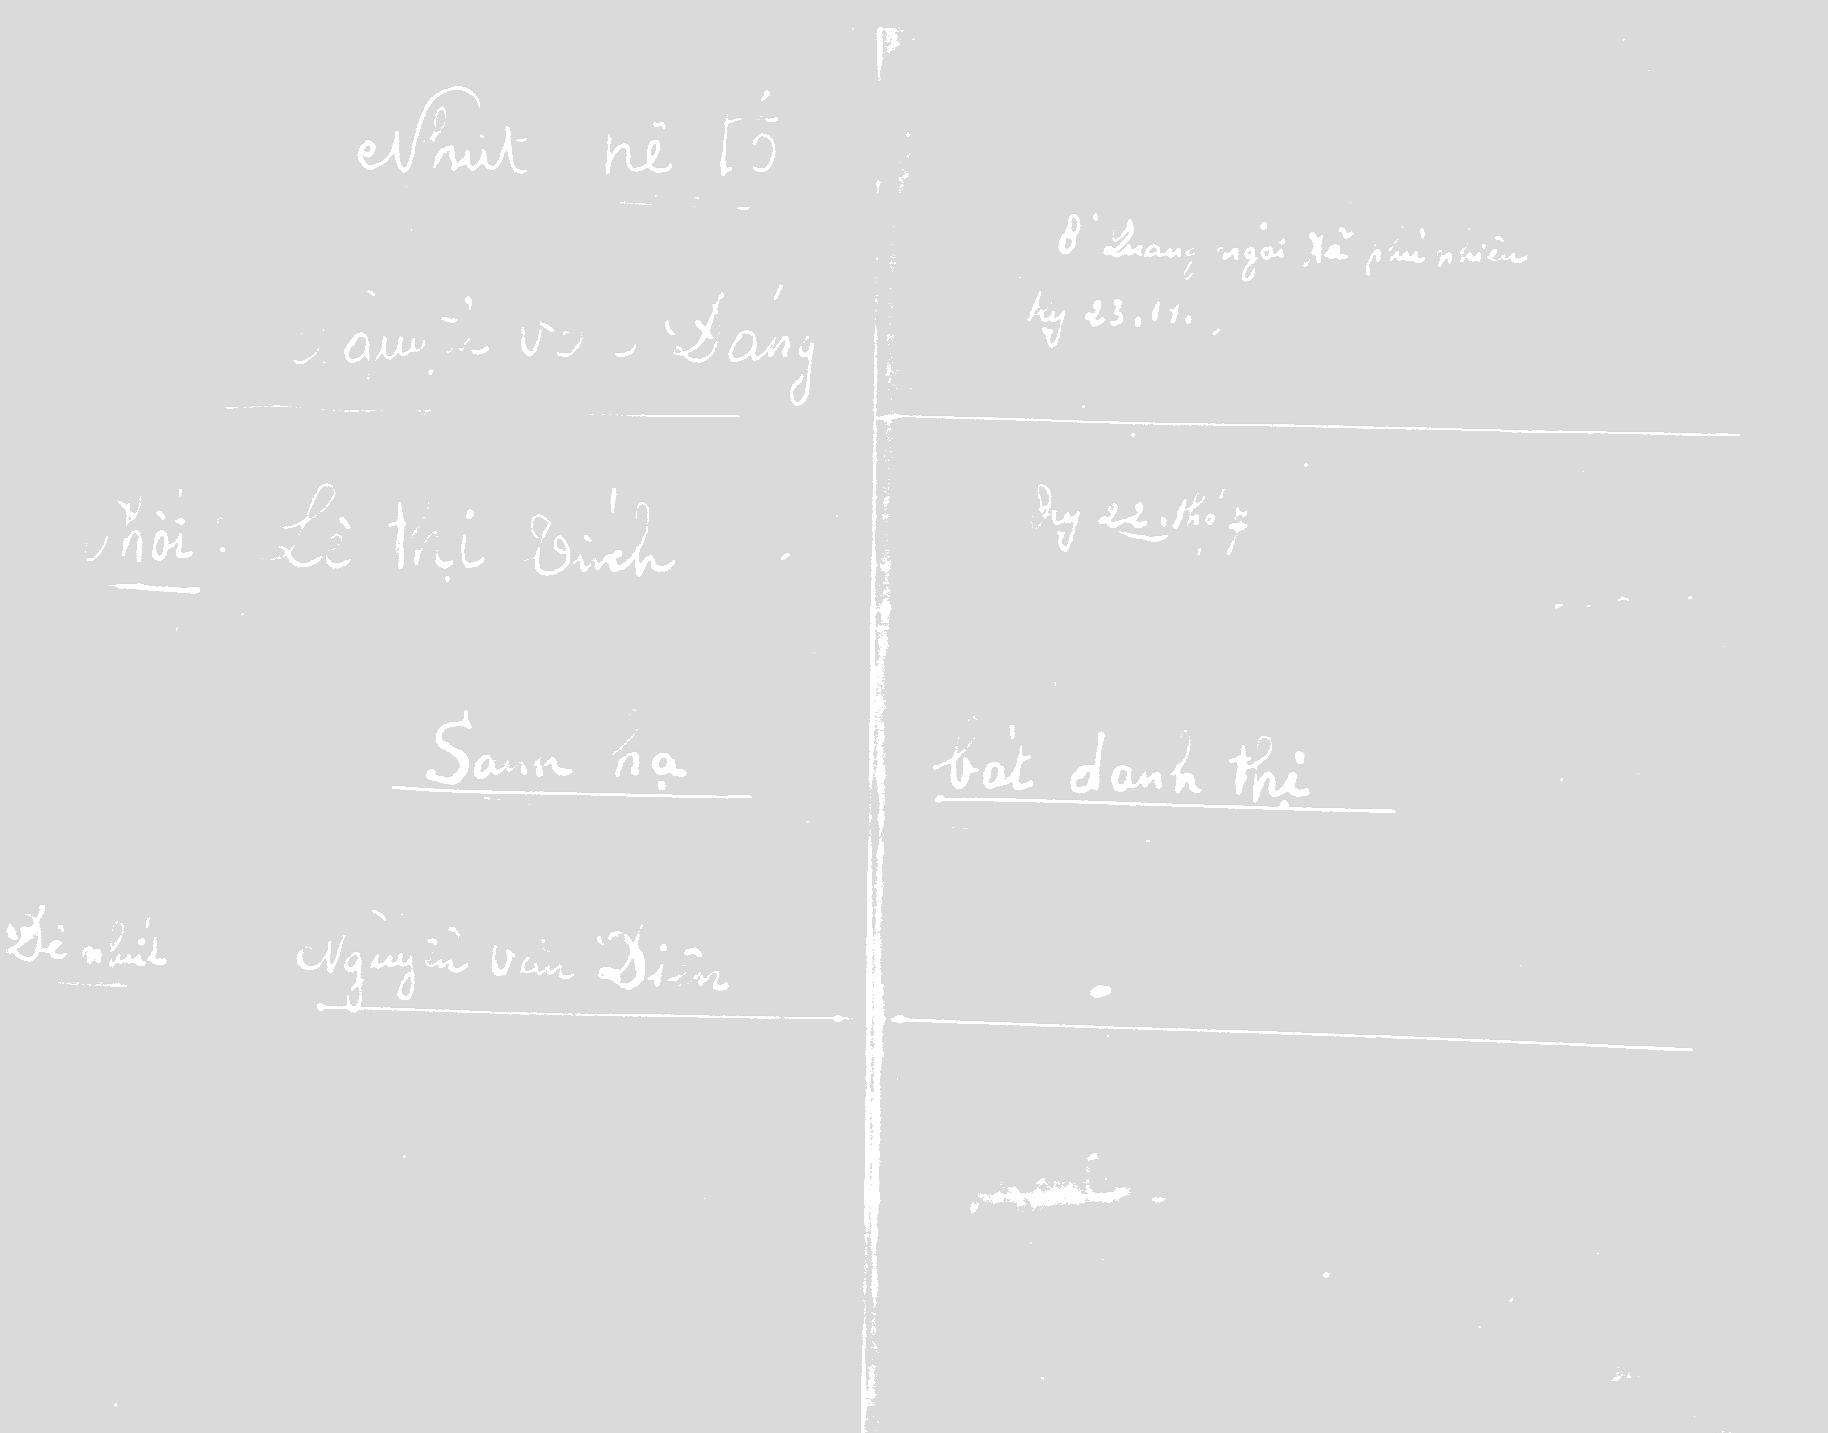 Nhứt nê tổ
Đáng
Thôi : Lê thị Bích
Sanh hạ
Đê nhứt Nguyễn văn Diên
ở Quang ngãi Xã phú nhiêu
kỵ 23.11.
kỵ 22. thá 7
bát danh thị